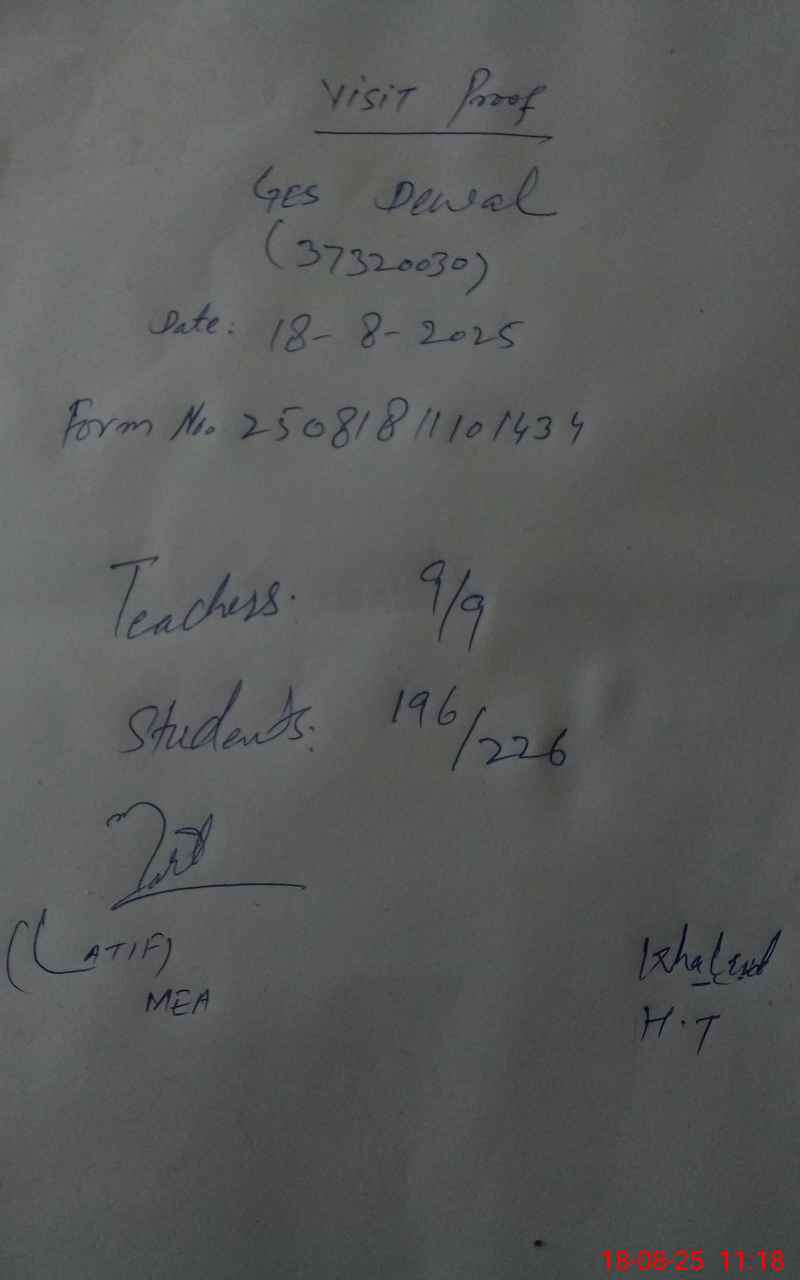 Visit Proof
GES Dewal
(37320030)
Date: 18-8-2025
Form No. 25081811101434
Teachers. 9/9
Students: 196/226
(LATIF)
MEA
Khaleed
H.T
18-08-25 11:18